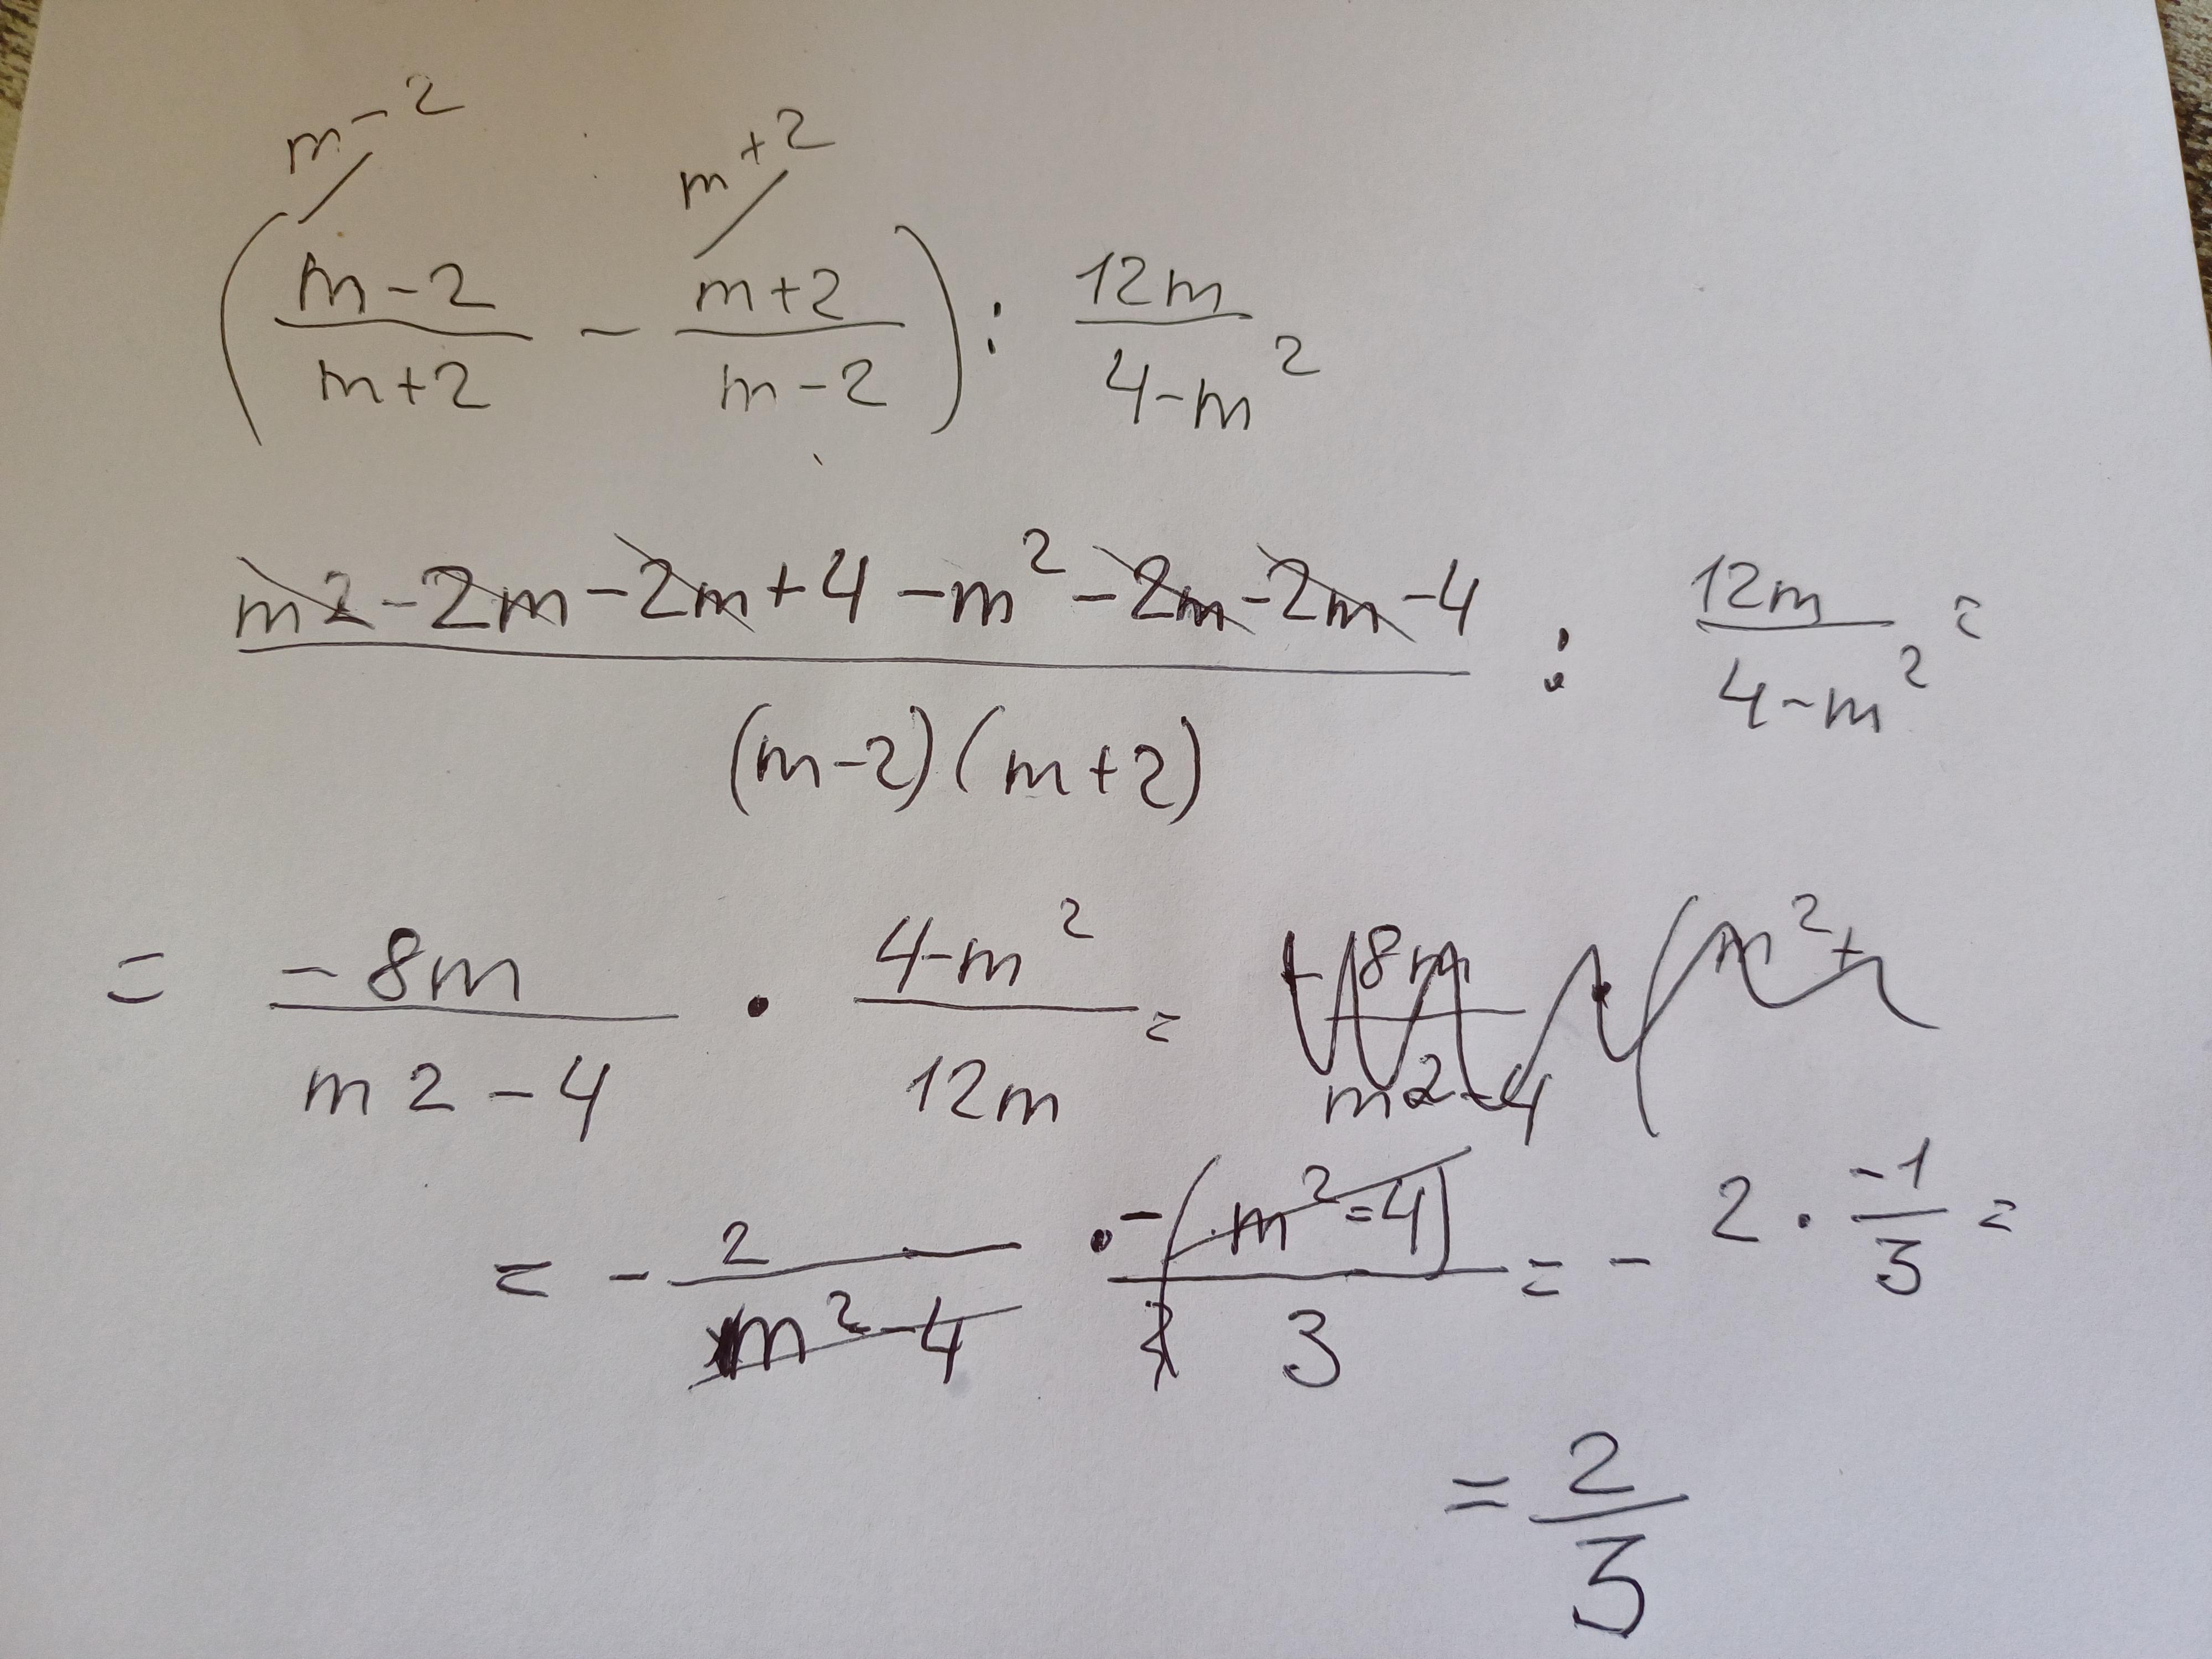 m-2 m+2
(m-2/m+2 - m+2/m-2) : 12m/4-m²
m2-2m-2m+4-m²-2m-2m-4/(m-2)(m+2) : 12m/4-m² =
= -8m/m2-4 · 4-m²/12m = -8m/m2-4 · (m²+
= - 2/m²-4 · -(m²-4)/3 = - 2 · -1/3 =
= 2/3